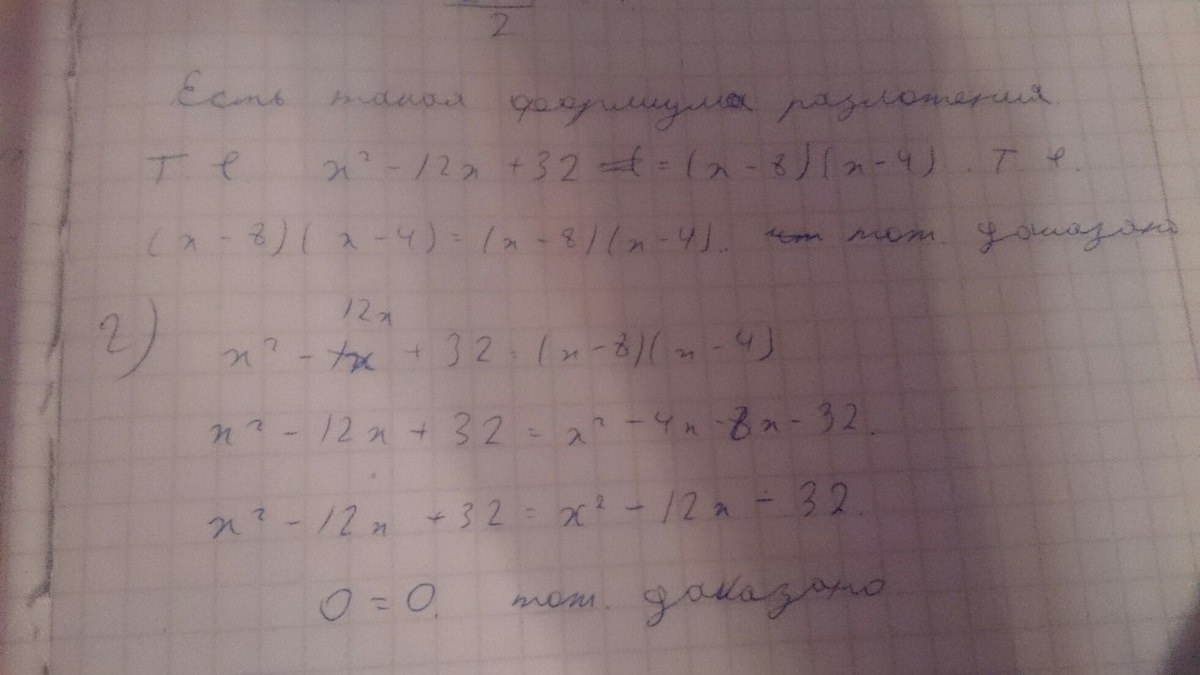 2
Есть такая формула разложения
Т е x² - 12x + 32 = (x - 8)(x - 4). Т е.
(x - 8)(x - 4) = (x - 8)(x - 4). тож. доказано
2) x² - 12x + 32 = (x - 8)(x - 4)
x² - 12x + 32 = x² - 4x - 8x - 32.
x² - 12x + 32 = x² - 12x - 32.
0 = 0. тож. доказано